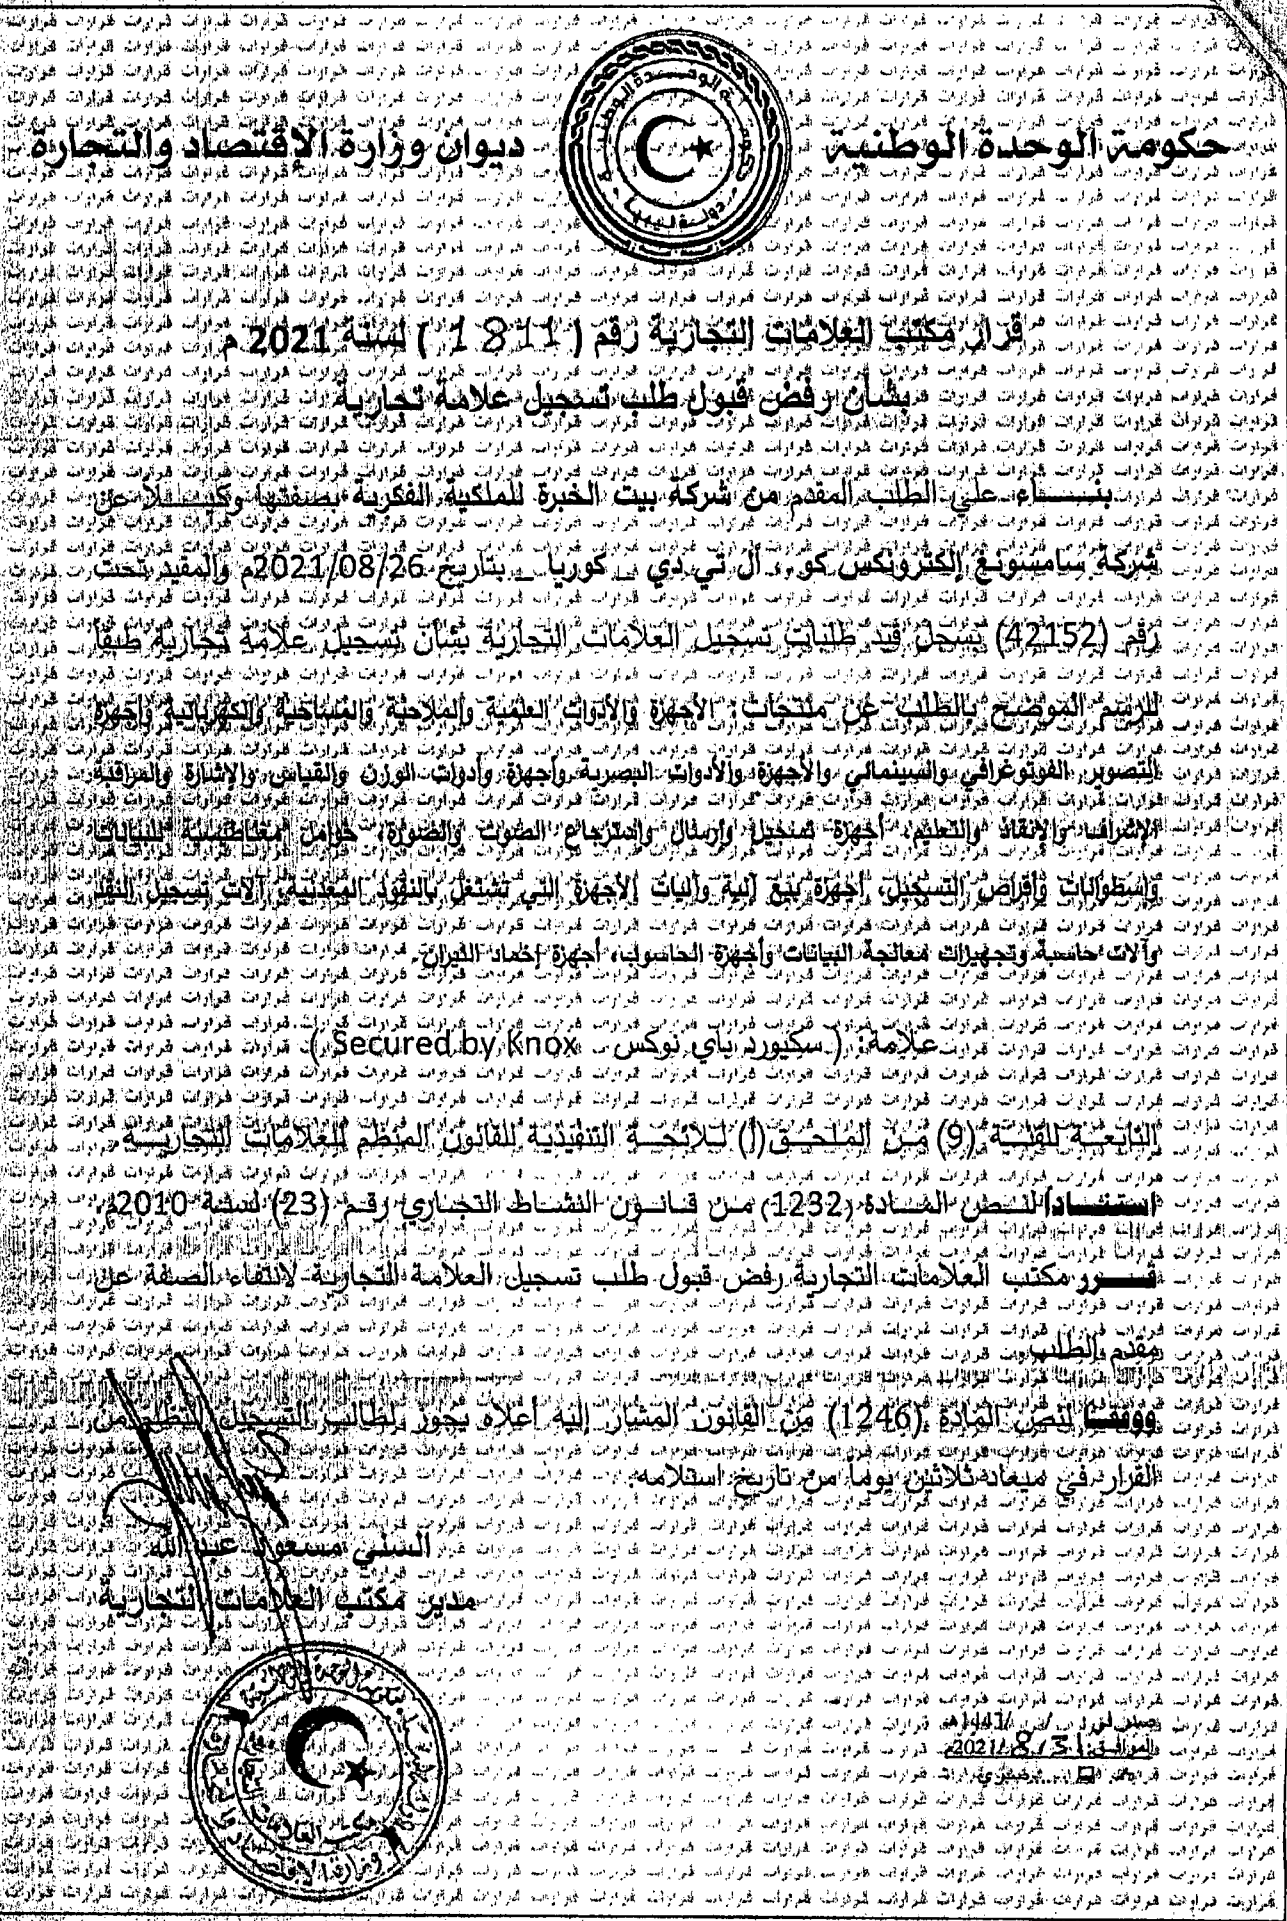 حكومة الوحدة الوطنية
ديوان وزارة الإقتصاد والتجارة
دولة ليبيا
قرار مكتب العلامات التجارية رقم ( 1811 ) لسنة 2021 م
بشأن رفض قبول طلب تسجيل علامة تجارية
بنــــاء علي الطلب المقدم من شركة بيت الخبرة للملكية الفكرية بصفتها وكيـــلاً عن
شركة سامسونغ إلكترونكس كو . أل تي دي _ كوريا _ بتاريخ 2021/08/26م والمقيد تحت
رقم (42152) بسجل قيد طلبات تسجيل العلامات التجارية بشأن تسجيل علامة تجارية طبقاً
للرسم الموضح بالطلب عن منتجات: الأجهزة والأدوات العلمية والملاحية والمساحية والكهربائية وأجهزة
التصوير الفوتوغرافي والسينمائي والأجهزة والأدوات البصرية وأجهزة وأدوات الوزن والقياس والإشارة والمراقبة
الإشراف والإنقاذ والتعليم، أجهزة تسجيل وإرسال وإسترجاع الصوت والصورة، حوامل مغناطيسية للبيانات
وإسطوانات وأقراص التسجيل، أجهزة بيع آلية وآليات الأجهزة التي تشتغل بالنقود المعدنية، آلات تسجيل النقد
وآلات حاسبة وتجهيزات معالجة البيانات وأجهزة الحاسوب، أجهزة إخماد النيران.
علامة: ( سكيورد باي نوكس - Secured by Knox )
التابعــة للفئــة (9) مــن الملحــق(أ) لــلائحــة التنفيذية للقانون المنظم للعلامات التجاريــة.
استنــــاداً لنــص المــادة (1232) مــن قــانــون النشــاط التجــاري رقــم (23) لسنــة 2010م.
قــــرر مكتب العلامات التجارية رفض قبول طلب تسجيل العلامة التجارية لانتفاء الصفة عن
مقدم الطلب
ووفقــاً لنص المادة (1246) من القانون المشار إليه أعلاه يجوز لطالب التسجيل التظلم من
القرار في ميعاد ثلاثين يوماً من تاريخ استلامه.
السني مسعود عبد الله
مدير مكتب العلامات التجارية
صدر في: / /1441هـ
الموافق: 31/8/2021م